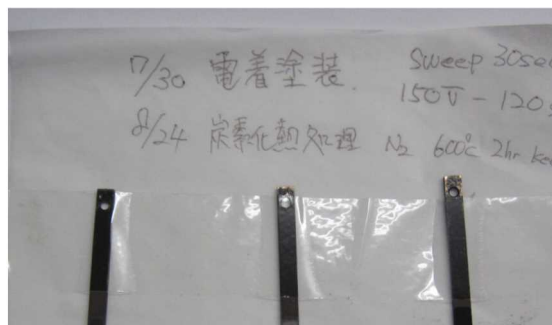 7/30 電着塗装 Sweep 30se
150V - 120
8/24 炭素化熱処理 N₂ 600℃ 2hr ke